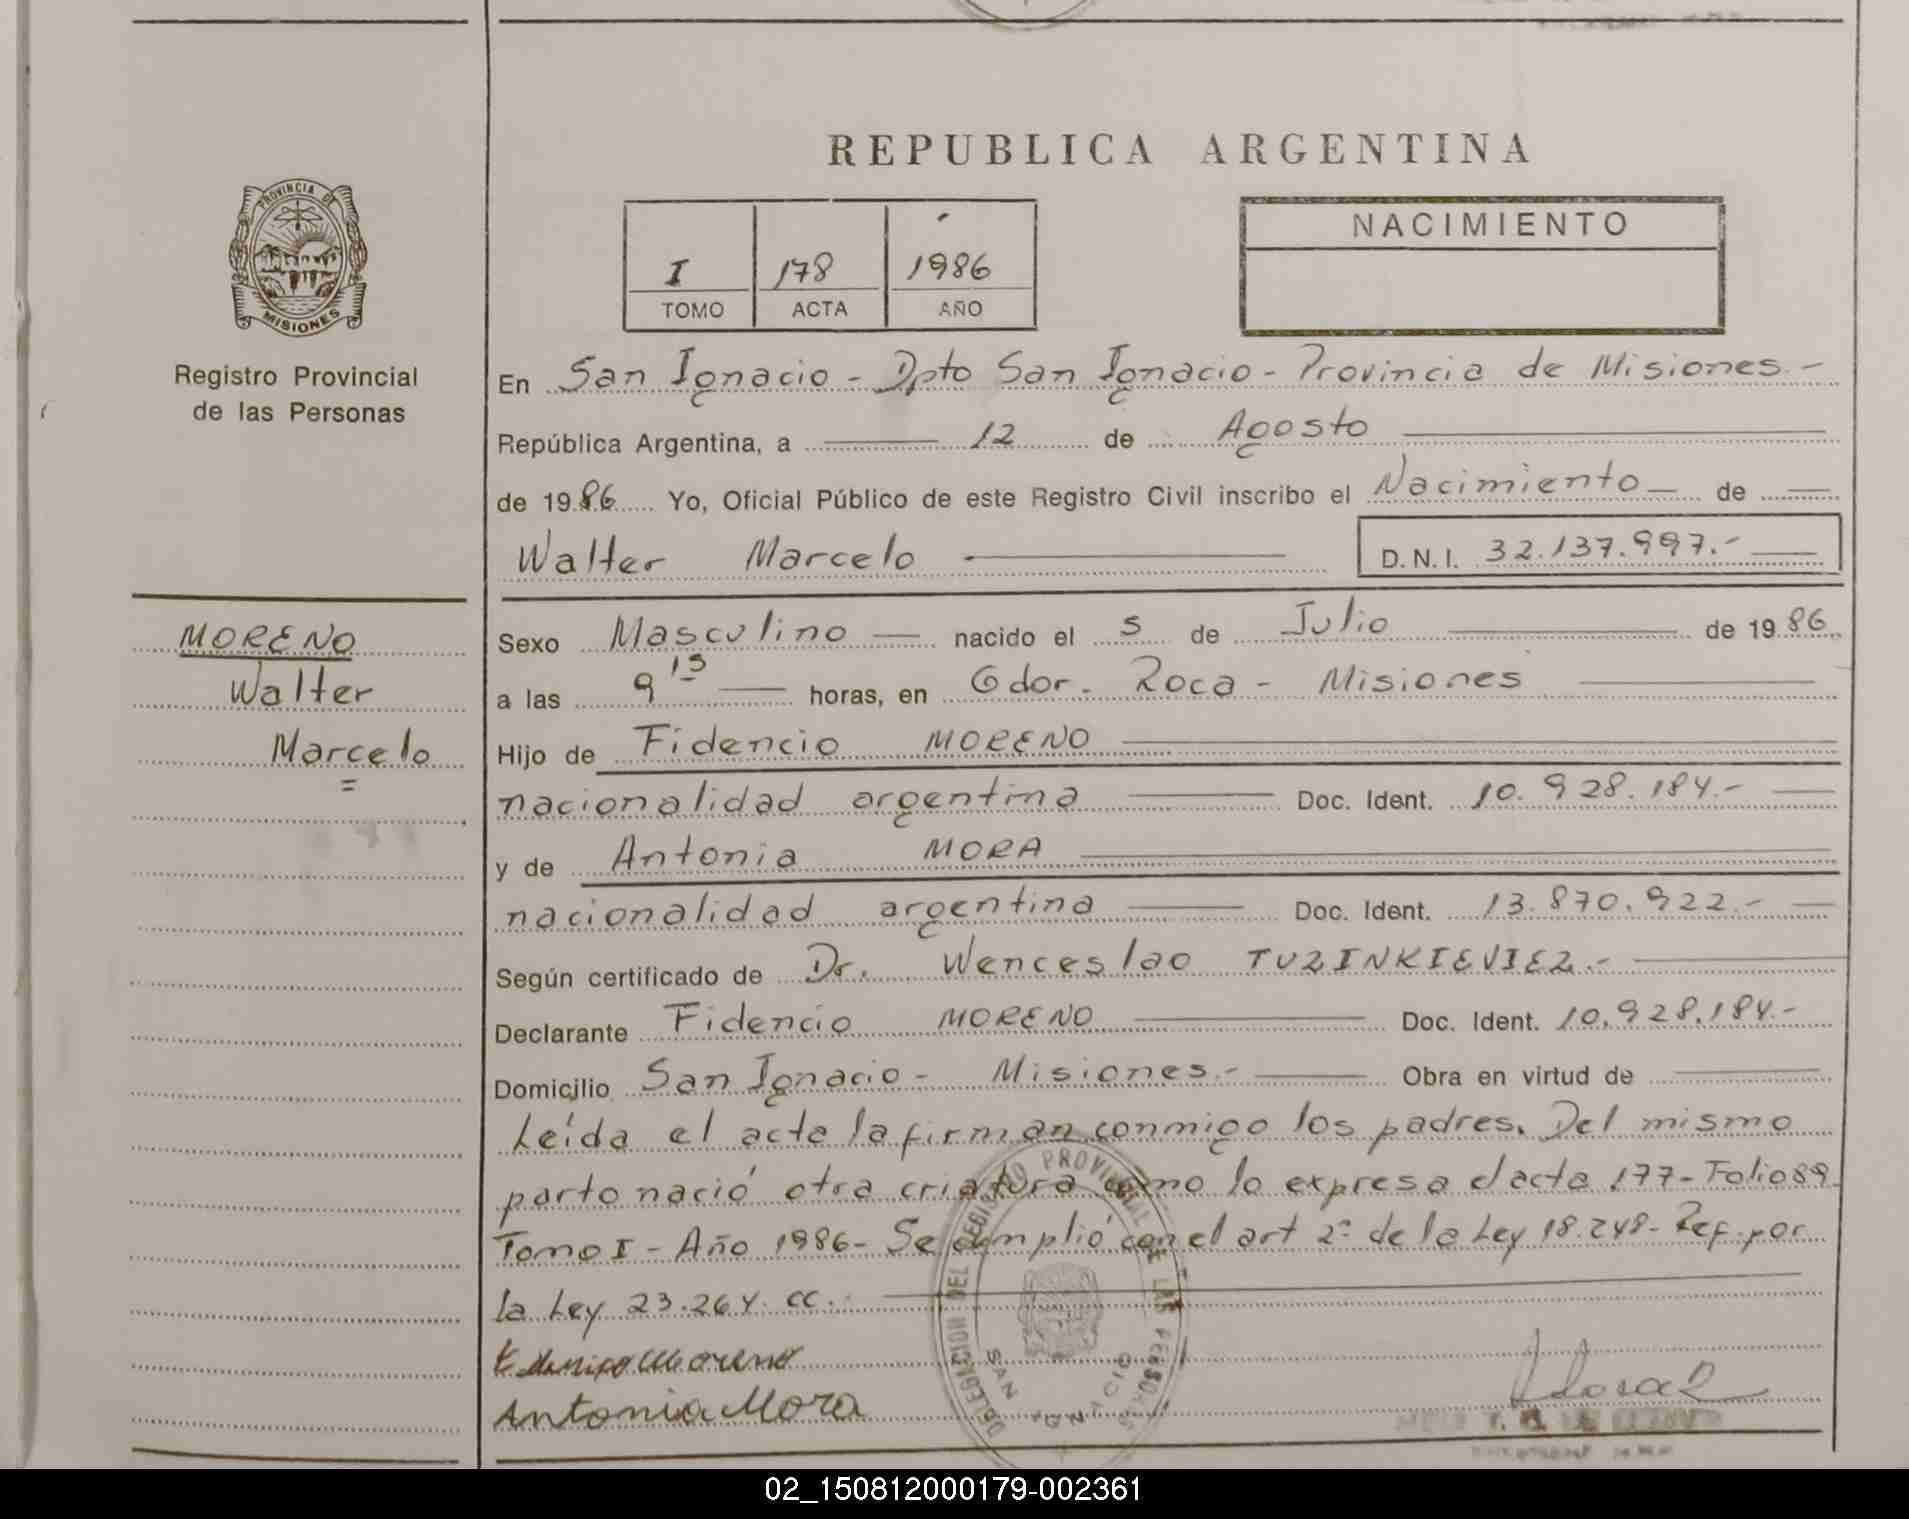 REPUBLICA ARGENTINA
PROVINCIA DE
MISIONES
Registro Provincial
de las Personas
I 178 1986
TOMO ACTA AÑO
NACIMIENTO
En San Ignacio - Dpto San Ignacio - Provincia de Misiones.-
República Argentina, a 12 de Agosto
de 1986 Yo, Oficial Público de este Registro Civil inscribo el Nacimiento de
Walter Marcelo D.N.I. 32.137.997.-
MORENO
Walter
Marcelo
Sexo Masculino nacido el 5 de Julio de 1986
a las 9 15 horas, en Gdor. Roca - Misiones
Hijo de Fidencio MORENO
nacionalidad argentina Doc. Ident. 10.928.184.-
y de Antonia MORA
nacionalidad argentina Doc. Ident. 13.870.922.-
Según certificado de Dr. Wenceslao TUZINKIEVIEZ.-
Declarante Fidencio MORENO Doc. Ident. 10.928.184.-
Domicilio San Ignacio - Misiones.- Obra en virtud de
Leída el acta la firman conmigo los padres. Del mismo
parto nació otra criatura como lo expresa el acta 177- Folio 89
Tomo I - Año 1986- Se cumplió con el art 2º de la Ley 18.248- Ref. por
la Ley 23.264. cc.
Moreno
Antonia Mora
DELEGACION DEL REGISTRO PROVINCIAL DE LAS PERSONAS
SAN IGNACIO
02_150812000179-002361